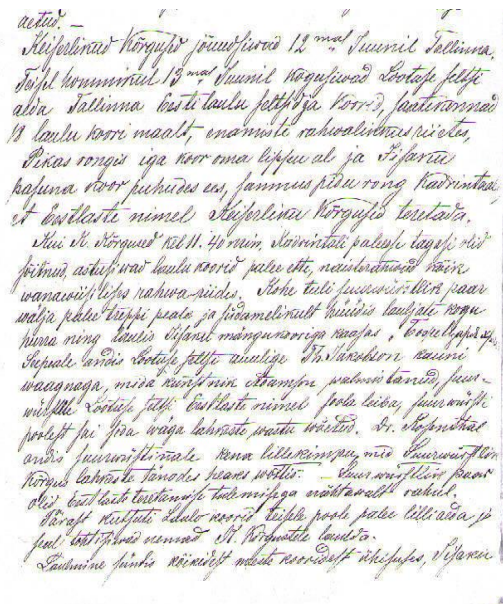 aetud. —
Keiserlikud Kõrgused jõuudsiwad 12mal Juunil Tallinna.
Teisel hommikul 13mal Juunil kogusiwad Lootuse seltsi
alda Tallinna Eesti laulu seltsidga Koorid, saatekonnad
18 laulu koori maalt, enamiste rahwaliku riietes,
Pikas rongis iga koor oma lippu al ja Sisaku
pasuna koor puhudes ees, sammus pidu rong Kadrintali,
et Eestlaste nimel Keiserliku Kõrgusid teretada.
Kui K. Kõrgused kel 11.40 min. Kadrintali paleese tagasi olid
sõitnud, astusiwad laulu koorid palee ette, naisterahwad kõik
wanawiisilises rahwa-riides. Kohe tuli suurwürstlik paar
wälja palee treppi peale ja südamelikult hüüdis lauljate kogu
hurra ning laulis Sisaku mängukooriga kaasas
Seepeale andis Lootuse seltsi auulige Th. Jakobson kauni
waagnaga, mida kunstnik Adamson walmistanud, suur-
würstile Lootuse seltsi Eestlaste nimel soola leiba, suurwürsti
poolest sai Jida wäga lahkeste wasta wõetud. Dr. Rosenthal
andis suurwürstinale kena lillekimpu, mis Suurwürstlik
Kõrgus lahkeste tänades heaks wõttis. — Suurwürstlik paar
olid Eestlaste teretamise tulemisega nähtawalt rahul.
Pärast kutsuti Laulo koorid teisele poole palee lilliaeda ja
seal tohtisiwad nemad K. Kõrgustele laulda.
Laulmine sündis kõikidest meeste kooridest ühisuses, Sisaku